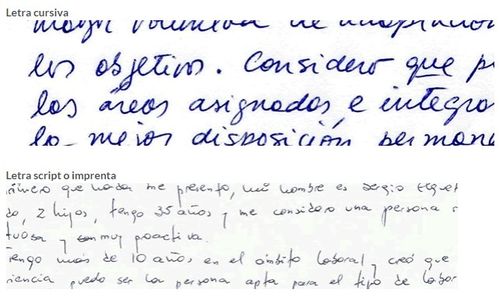 Letra cursiva
mayor
los objetivos. Considero que
las áreas asignadas, e integra
la mejor disposición
Letra script o imprenta
que nada me presento, mi nombre es Sergio
do, 2 hijos, tengo 35 años, y me considero una persona
tuosa y muy proactiva.
Tengo más de 10 años, en el ámbito laboral, y creó que
puedo ser la persona apta para el tipo de labor